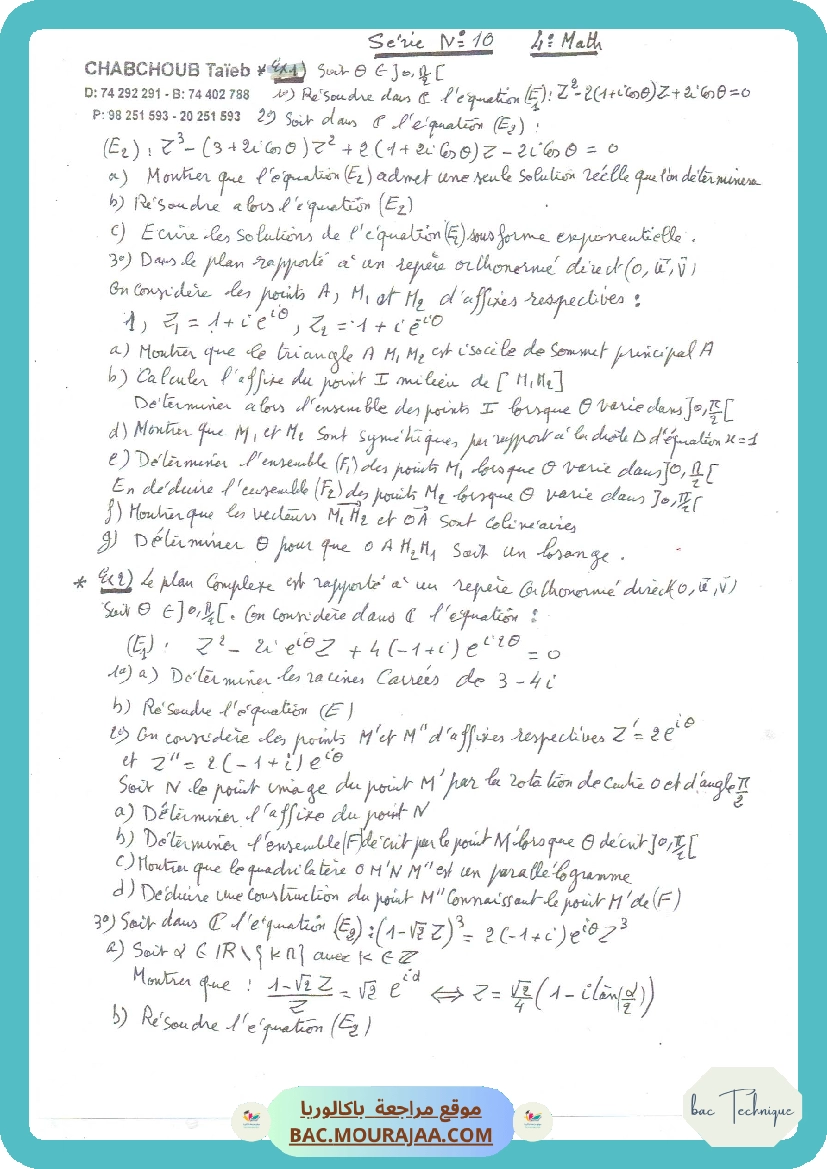 Série N° 10 4è Math
CHABCHOUB Taïeb * Ex 1) Soit θ ∈ ]0, π/2[
D: 74 292 291 - B: 74 402 788 1°) Résoudre dans ℂ l'équation (E₁): Z² - 2(1+i cosθ)Z + 2i cosθ = 0
P: 98 251 593 - 20 251 593 2°) Soit dans ℂ l'équation (E₂) :
(E₂) : Z³ - (3 + 2i cosθ) Z² + 2(1 + 2i cosθ) Z - 2i cosθ = 0
a) Montrer que l'équation (E₂) admet une seule solution réelle que l'on déterminera
b) Résoudre alors l'équation (E₂)
c) Ecrire les solutions de l'équation (E₂) sous forme exponentielle.
3°) Dans le plan rapporté à un repère orthonormé direct (O, u⃗, v⃗)
On considère les points A, M₁ et M₂ d'affixes respectives :
1, Z₁ = 1 + i e^{iθ}, Z₂ = 1 + i e^{-iθ}
a) Montrer que le triangle A M₁ M₂ est isocèle de sommet principal A
b) Calculer l'affixe du point I milieu de [M₁M₂]
Déterminer alors l'ensemble des points I lorsque θ varie dans ]0, π/2[
d) Montrer que M₁ et M₂ sont symétriques par rapport à la droite Δ d'équation x = 1
e) Déterminer l'ensemble (F₁) des points M₁ lorsque θ varie dans ]0, π/2[
En déduire l'ensemble (F₂) des points M₂ lorsque θ varie dans ]0, π/2[
f) Montrer que les vecteurs M₁M₂ et OA sont colinéaires
g) Déterminer θ pour que O A M₂ M₁ soit un losange.
* Ex 2) Le plan complexe est rapporté à un repère orthonormé direct (O, u⃗, v⃗)
Soit θ ∈ ]0, π/2[. On considère dans ℂ l'équation :
(E₁) : Z² - 2i e^{iθ} Z + 4(-1+i) e^{i2θ} = 0
1°) a) Déterminer les racines carrées de 3 - 4i
b) Résoudre l'équation (E)
2°) On considère les points M' et M'' d'affixes respectives Z' = 2 e^{iθ}
et Z'' = 2(-1+i) e^{iθ}
Soit N le point image du point M' par la rotation de centre O et d'angle π/2
a) Déterminer l'affixe du point N
b) Déterminer l'ensemble (F) décrit par le point M' lorsque θ décrit ]0, π/2[
c) Montrer que le quadrilatère O M' N M'' est un parallélogramme
d) Déduire une construction du point M'' connaissant le point M' de (F)
3°) Soit dans ℂ l'équation (E₂) : (1 - √2 Z)³ = 2(-1+i) e^{iθ} Z³
a) Soit α ∈ ℝ \ {kπ} avec k ∈ ℤ
Montrer que : (1 - √2 Z)/Z = √2 e^{iα} ⟺ Z = √2/4 (1 - i tan(α/2))
b) Résoudre l'équation (E₂)
bac Technique
موقع مراجعة باكالوريا
BAC.MOURAJAA.COM